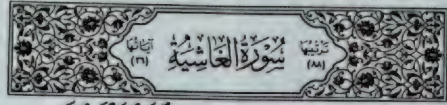 ترتيبها (٨٨) سُورَةُ الغَاشِيَةِ آياتها (٢٦)